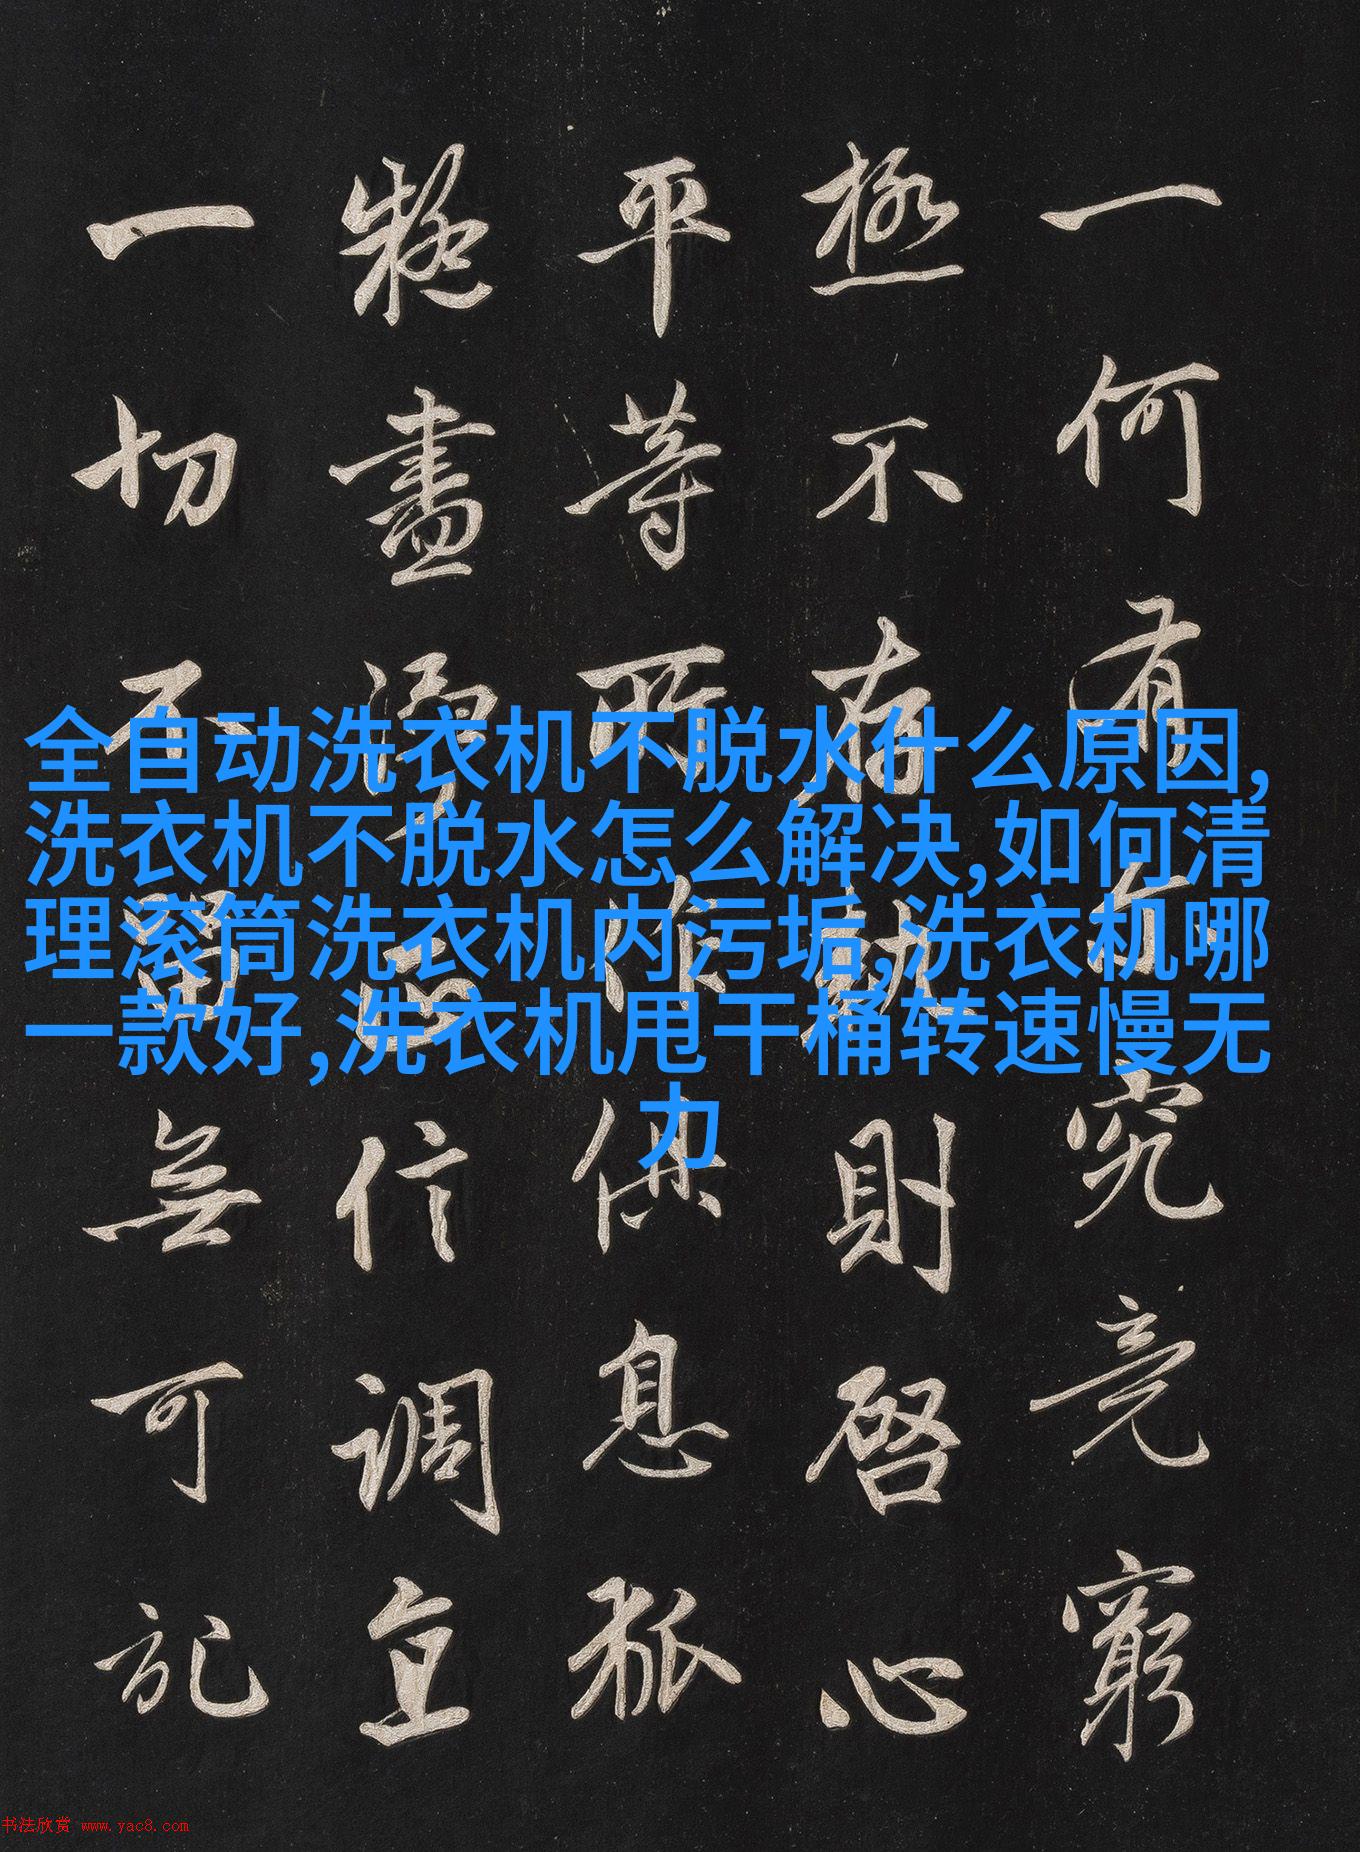 一何有究竟窮
極不存軌則啓心
平等所作俱息狐
疑盡淨正信調直
一切不留無可記
全自动洗衣机不脱水什么原因,
洗衣机不脱水怎么解决,如何清
理滚筒洗衣机内污垢,洗衣机哪
一款好,洗衣机甩干桶转速慢无
力
书法欣赏 www.yac8.com